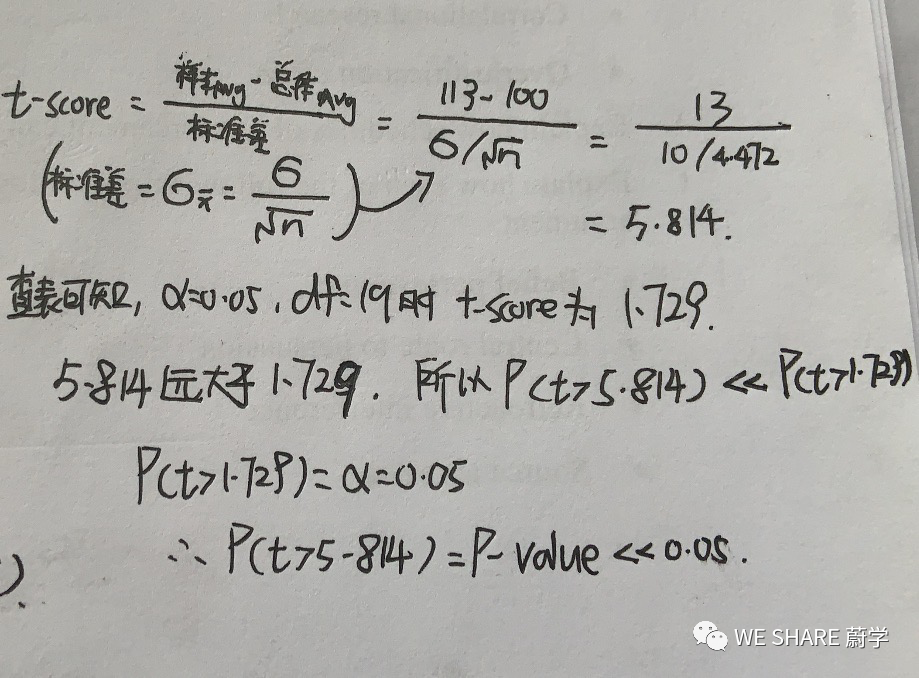 t-score = (样本Avg - 总体Avg) / 标准差 = (113-100) / (6/√n) = 13 / (10/4.472)
(标准差 = 6x̄ = 6/√n)
= 5.814.
查表可知, α=0.05, df=19时 t-score为 1.729.
5.814 远大于 1.729. 所以 P(t>5.814) << P(t>1.729)
P(t>1.729)=α=0.05
∴ P(t>5.814)=P-value << 0.05.
WE SHARE 蔚学